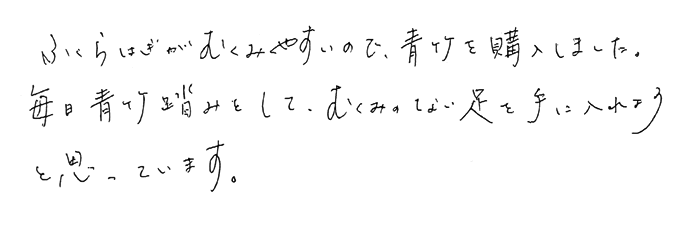 ふくらはぎがむくみやすいので、青竹を購入しました。
毎日青竹踏みをして、むくみのない足を手に入れよう
と思っています。